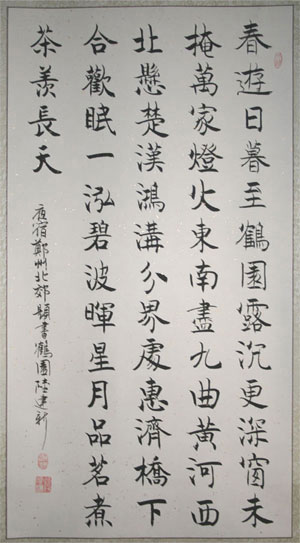 春遊日暮至鶴園露沉更深窗未
掩萬家燈火東南盡九曲黃河西
北懸楚漢鴻溝分界處惠濟橋下
合歡眠一泓碧波暉星月品茗煮
茶羨長天
夜宿鄭州北郊題書鶴園陸建新